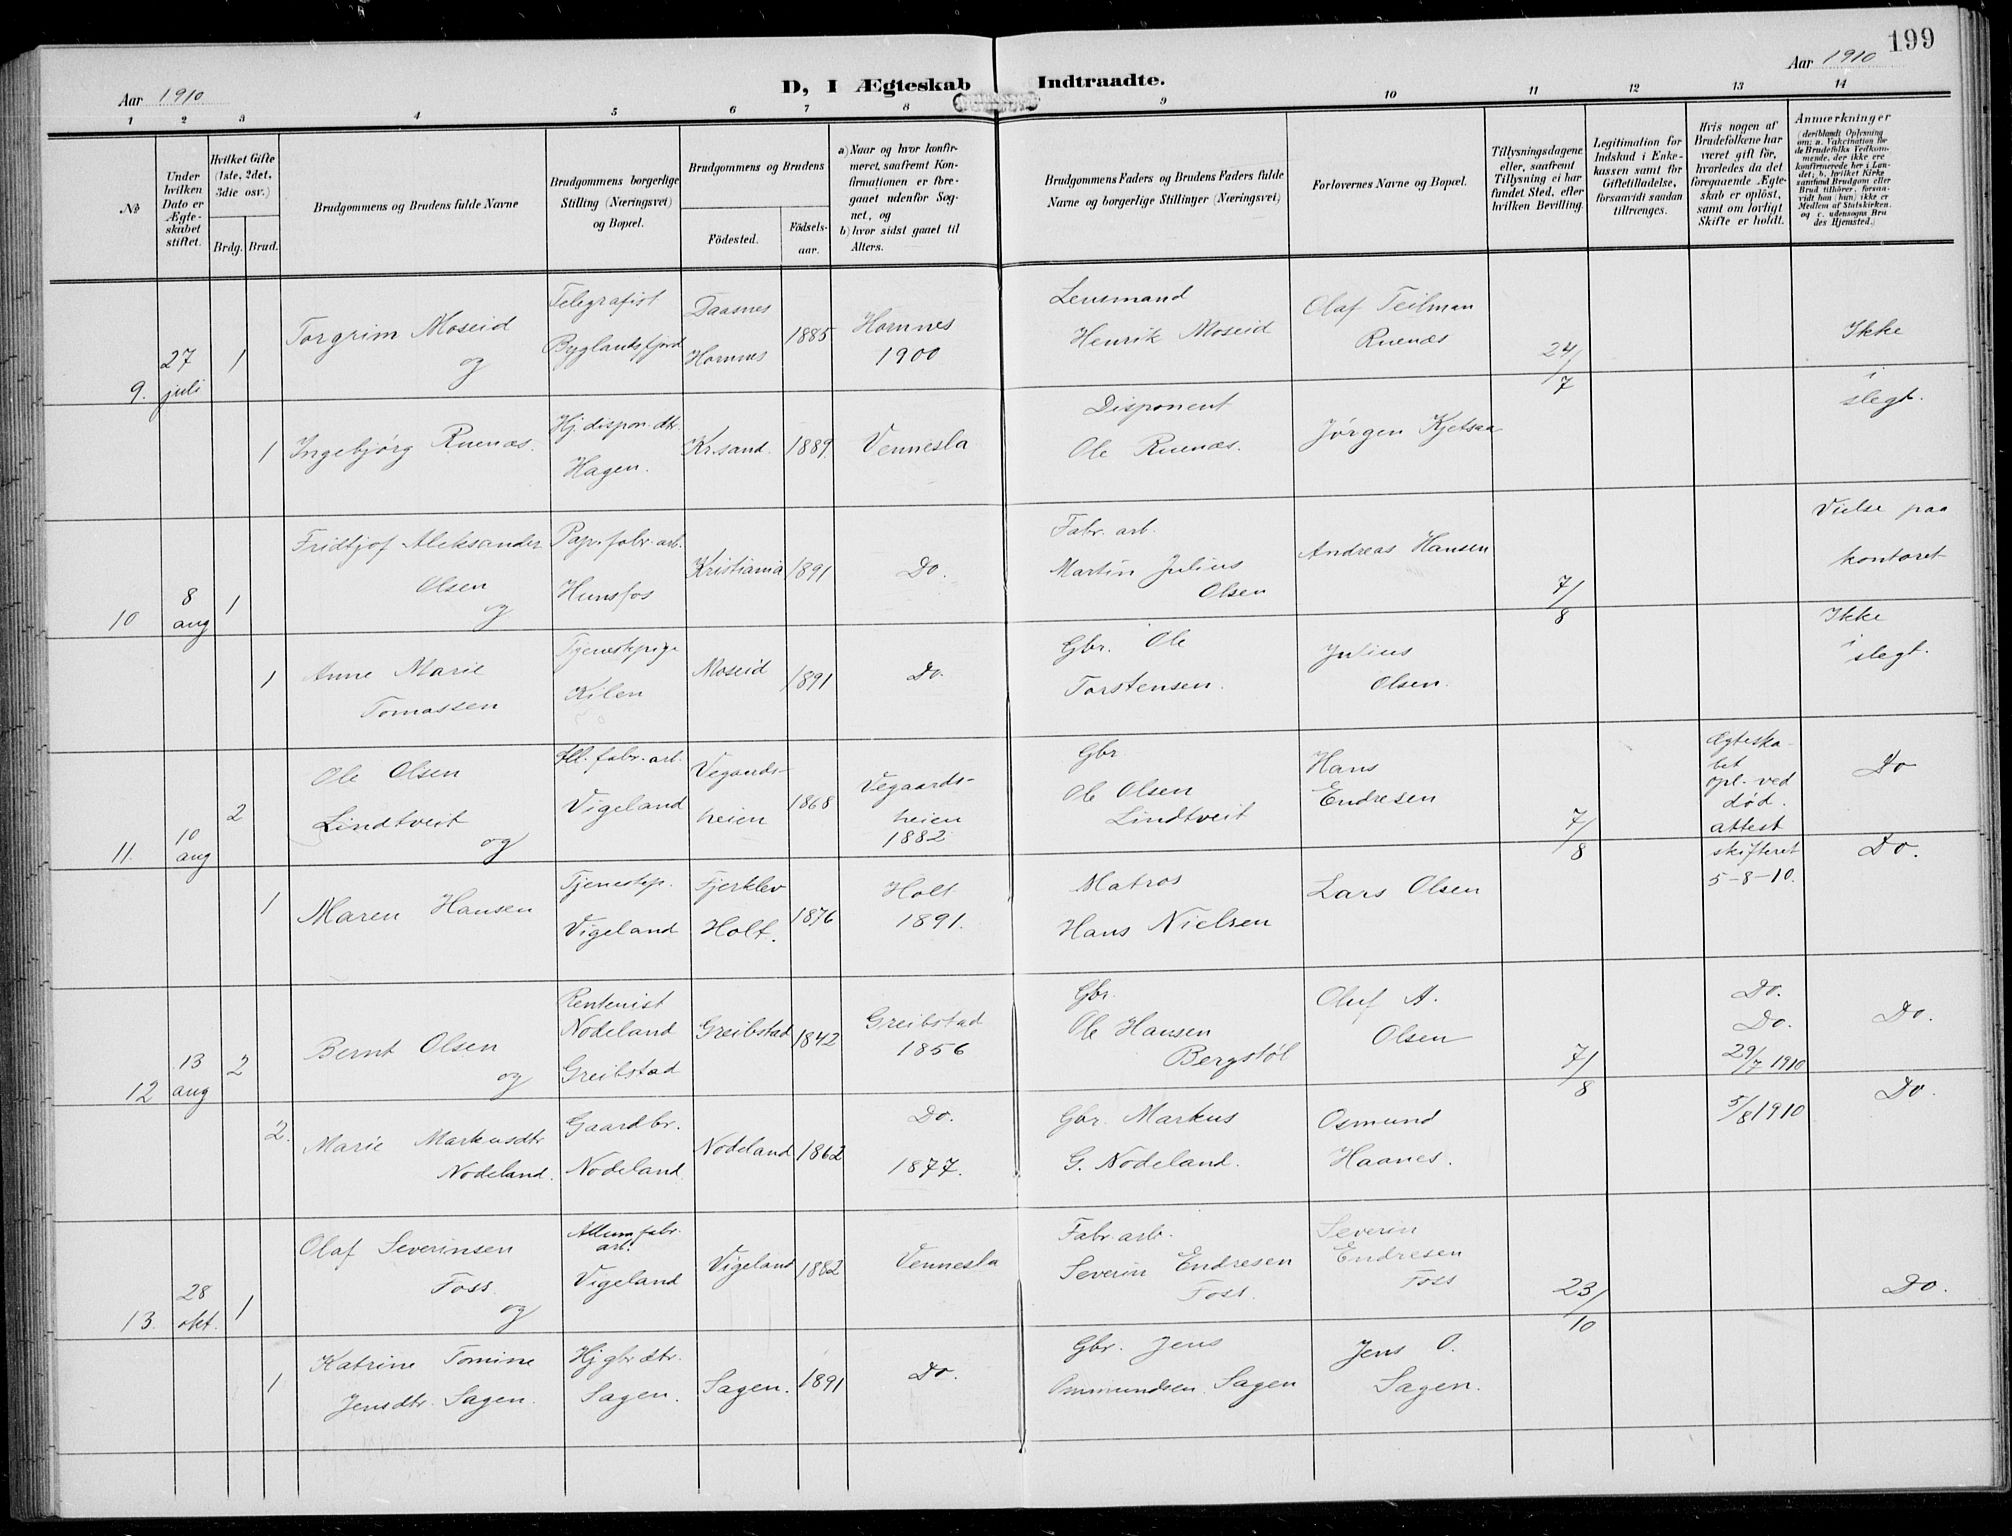 199
Aar 1910
D, I Ægteskab Indtraadte.
Aar 1910
1 2 3 4 5 6 7 8 9 10 11 12 13 14
No
Under hvilken Dato er Ægteskabet stiftet.
Hvilket Gifte (1ste, 2det, 3die osv.)
Brdg. Brud.
Brudgommens og Brudens fulde Navne
Brudgommens borgerlige Stilling (Næringsvei) og Bopæl.
Brudgommens og Brudens
Födested. Födsels-aar.
a) Naar og hvor konfirmeret, saafremt Konfirmationen er foregaaet udenfor Sognet, og
b) hvor sidst gaaet til Alters.
Brudgommens Faders og Brudens Faders fulde Navne og borgerlige Stillinger (Næringsvei)
Forlovernes Navne og Bopæl.
Tillysningsdagene eller, saafremt Tillysning ei har fundet Sted, efter hvilken Bevilling.
Legitimation for Indskud i Enkekassen samt for Giftetilladelse, forsaavidt saadan tiltrænges.
Hvis nogen af Brudefolkene har været gift för, hvorledes da det foregaaende Ægteskab er oplöst, samt om lovligt Skifte er holdt.
Anmerkninger
(deriblandt Oplysning om: a. Vakcination for de Brudefolks Vedkommende, der ikke ere konfirmerede her i Landet; b. hvilket Kirkesamfund Brudgom eller Brud tilhörer, forsaavidt han (hun) ikke er Medlem af Statskirken. og c. udensogns Brudes Hjemsted.)
9. 27 juli 1 Torgrim Moseid og
Telegrafist Byglandsfjord
Daasnes Hornnes 1885
Hornnes 1900
Lensmand Henrik Moseid
Olaf Teilman Ruenæs
24/7
Ikke i slegt.
1 Ingebjørg Ruenæs.
Hj. dispon. dtr. Hagen.
Kr.sand. 1889 Vennesla
Disponent Ole Ruenæs.
Jørgen Kjetsaa
10 8 aug 1 Fridtjof Aleksander Olsen og
Pap. fabr. arb. Hunsfos
Kristiania 1891 Do.
Fabr. arb. Martin Julius Olsen
Andreas Hansen
7/8
Vielse paa kontoret
Ikke i slegt.
1 Anne Marie Tomassen
Tjenestepige Kilen
Moseid 1891 Do.
Gbr. Ole Torstensen.
Julius Olsen.
11. 10 aug 2 Ole Olsen Lindtveit og
All. fabr. arb. Vigeland
Vegaardsheien 1868
Vegaardsheien 1882
Gbr Ole Olsen Lindtveit
Hans Endresen
7/8
Ægteskabet opl. ved død. attest skifteret 5-8-10.
Do
1 Maren Hansen
Tjenestep. Vigeland
Fjerklev Holt. 1876
Holt 1891.
Matros Hans Nielsen
Lars Olsen
Do.
12 13 aug 2 Bernt Olsen og
Rentenist Nodeland Greibstad
Greibstad 1842
Greibstad 1856
Gbr. Ole Hansen Bergstøl
Oluf A. Olsen
7/8
Do. Do. 29/7 1910
Do.
2. Marie Markusdtr Nodeland.
Gaardbr. Nodeland
Nodeland 1862
Do. 1877.
Gbr. Markus G. Nodeland.
Osmund Haanes.
5/8 1910
Do.
13. 28 okt. 1 Olaf Severinsen Foss. og
Allum fabr. arb. Vigeland
Vigeland 1882 Vennesla
Fabr. arb. Severin Endresen Foss.
Severin Endresen Foss
23/10
Do.
1 Katrine Tomine Jensdtr. Sagen.
Hj gbr dtr. Sagen.
Sagen. 1891 Do.
Gbr. Jens Ommundsen Sagen
Jens O. Sagen.